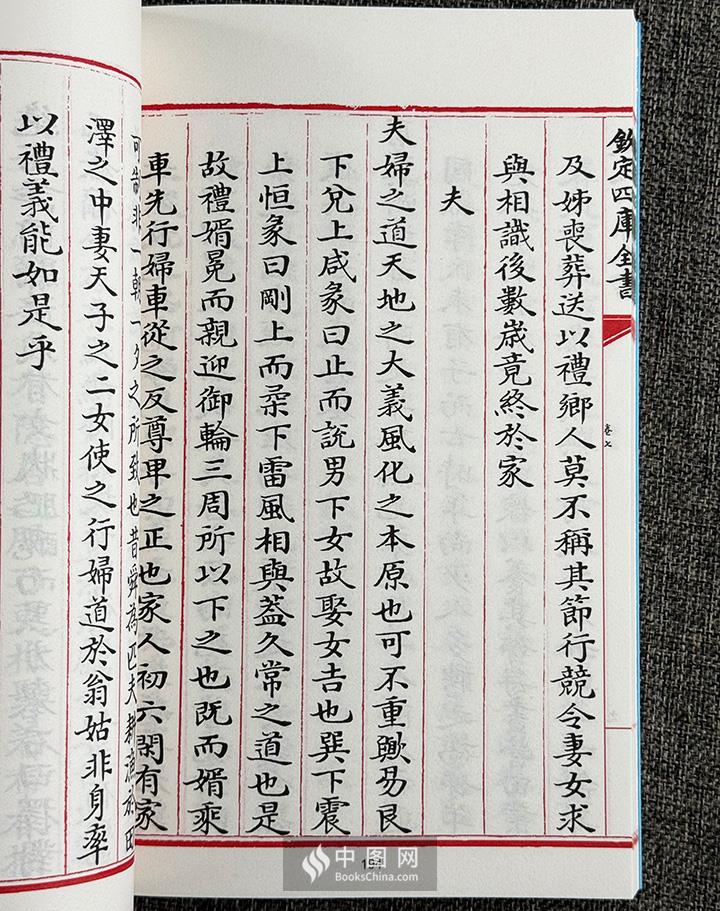 欽定四庫全書
卷七
及姊喪葬送以禮鄉人莫不稱其節行競令妻女求
與相識後數嵗竟終於家
夫
夫婦之道天地之大義風化之本原也可不重歟易艮
下兌上咸彖曰止而說男下女故娶女吉也巽下震
上恒彖曰剛上而柔下雷風相與葢久常之道也是
故禮婿冕而親迎御輪三周所以下之也既而婿乘
車先行婦車從之反尊卑之正也家人初六閑有家
可告非一朝一夕之所致也昔舜為匹夫耕漁於田
澤之中妻天子之二女使之行婦道於翁姑非身率
以禮義能如是乎
中图网
BooksChina.com